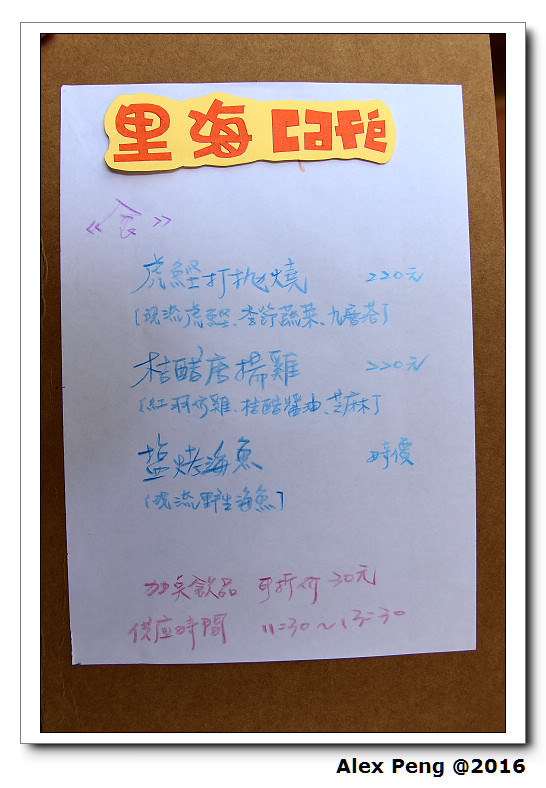 里海 Café
《食》
虎鰹打拋燒 220元
(現流虎鰹、季節蔬菜、九層塔)
桔醋唐揚雞 220元
(紅羽仿雞、桔醋醬油、芝麻)
塩烤海魚 時價
(現流野生海魚)
加点飲品 可折价 30元
供应時間 11:30~13:30
Alex Peng @2016